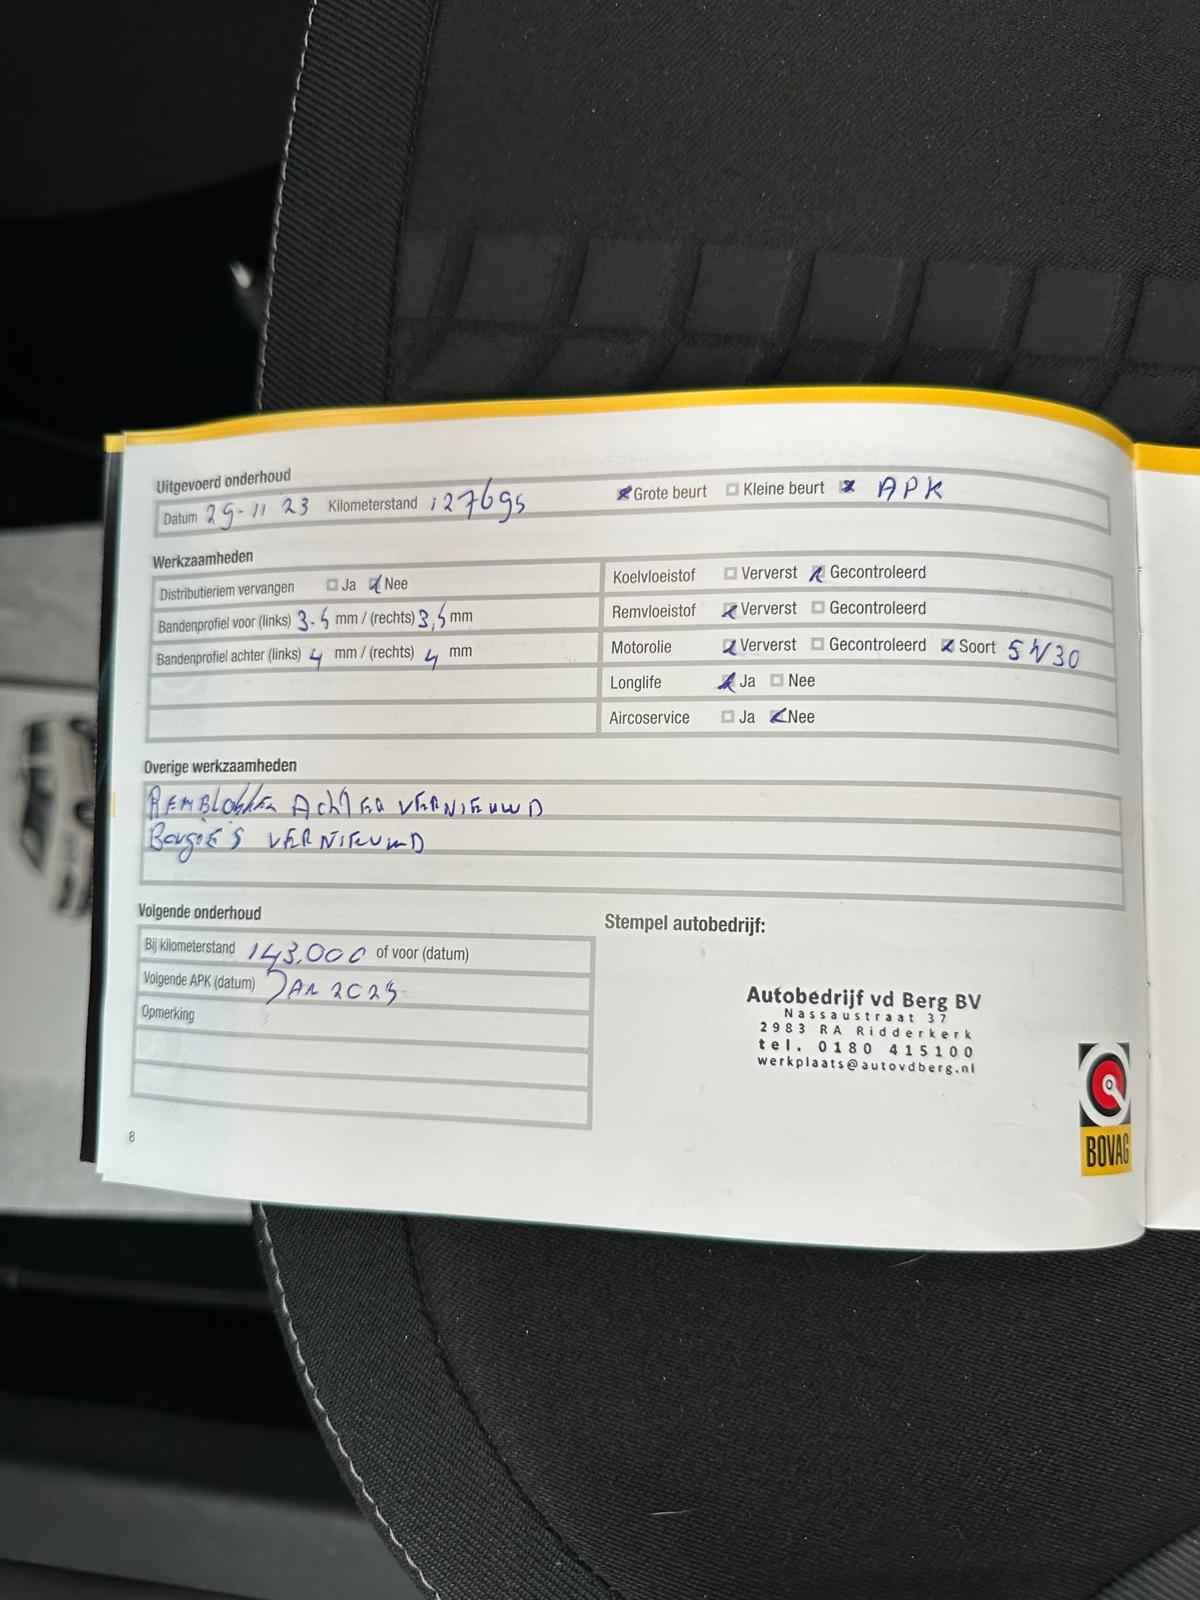 Uitgevoerd onderhoud
Datum 29-11 23 Kilometerstand 127695 Grote beurt Kleine beurt APK
Werkzaamheden
Distributieriem vervangen Ja Nee
Bandenprofiel voor (links) 3.5 mm / (rechts) 3,5 mm
Bandenprofiel achter (links) 4 mm / (rechts) 4 mm
Koelvloeistof Ververst Gecontroleerd
Remvloeistof Ververst Gecontroleerd
Motorolie Ververst Gecontroleerd Soort 5W30
Longlife Ja Nee
Aircoservice Ja Nee
Overige werkzaamheden
REMBLOKKEN ACHTER VERNIEUWD
BOUGIE'S VERNIEUWD
Volgende onderhoud
Bij kilometerstand 143.000 of voor (datum)
Volgende APK (datum) JAN 2025
Opmerking
Stempel autobedrijf:
Autobedrijf vd Berg BV
Nassaustraat 37
2983 RA Ridderkerk
tel. 0180 415100
werkplaats@autovdberg.nl
BOVAG
8